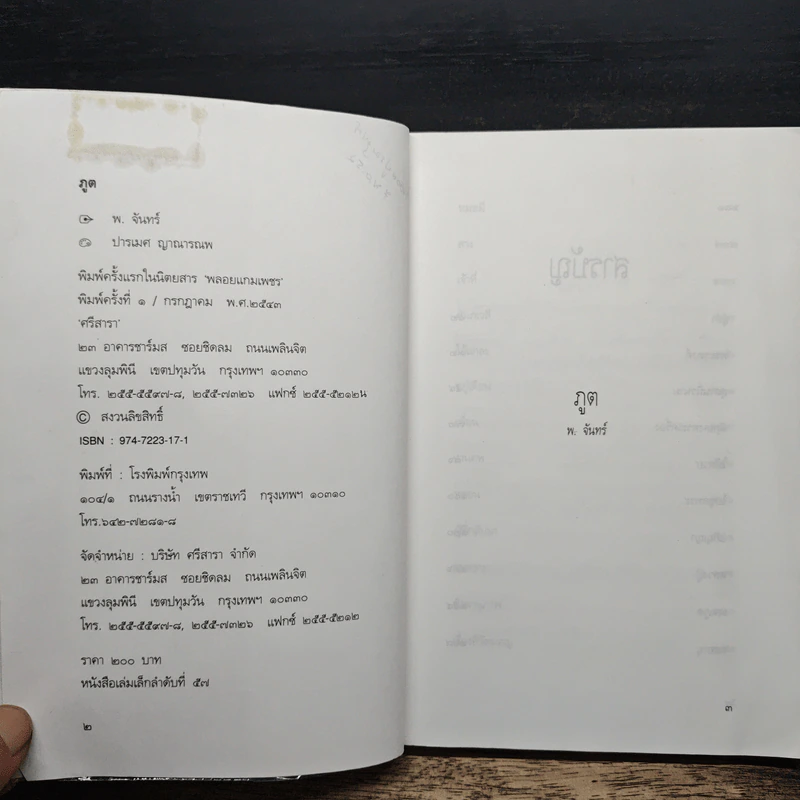 ภูต
พ. จันทร์
ปารเมศ ญาณารณพ
พิมพ์ครั้งแรกในนิตยสาร 'พลอยแกมเพชร'
พิมพ์ครั้งที่ ๑ / กรกฎาคม พ.ศ.๒๕๔๓
'ศรีสารา'
๒๓ อาคารชาร์มส ซอยชิดลม ถนนเพลินจิต
แขวงลุมพินี เขตปทุมวัน กรุงเทพฯ ๑๐๓๓๐
โทร. ๒๕๕-๕๕๙๗-๘, ๒๕๕-๗๓๒๖ แฟกซ์ ๒๕๕-๕๒๑๒น
© สงวนลิขสิทธิ์
ISBN : 974-7223-17-1
พิมพ์ที่ : โรงพิมพ์กรุงเทพ
๑๐๔/๑ ถนนรางน้ำ เขตราชเทวี กรุงเทพฯ ๑๐๓๑๐
โทร.๖๔๒-๗๒๘๑-๘
จัดจำหน่าย : บริษัท ศรีสารา จำกัด
๒๓ อาคารชาร์มส ซอยชิดลม ถนนเพลินจิต
แขวงลุมพินี เขตปทุมวัน กรุงเทพฯ ๑๐๓๓๐
โทร. ๒๕๕-๕๕๙๗-๘, ๒๕๕-๗๓๒๖ แฟกซ์ ๒๕๕-๕๒๑๒
ราคา ๒๐๐ บาท
หนังสือเล่มเล็กลำดับที่ ๕๗
๒
ภูต
พ. จันทร์
๓